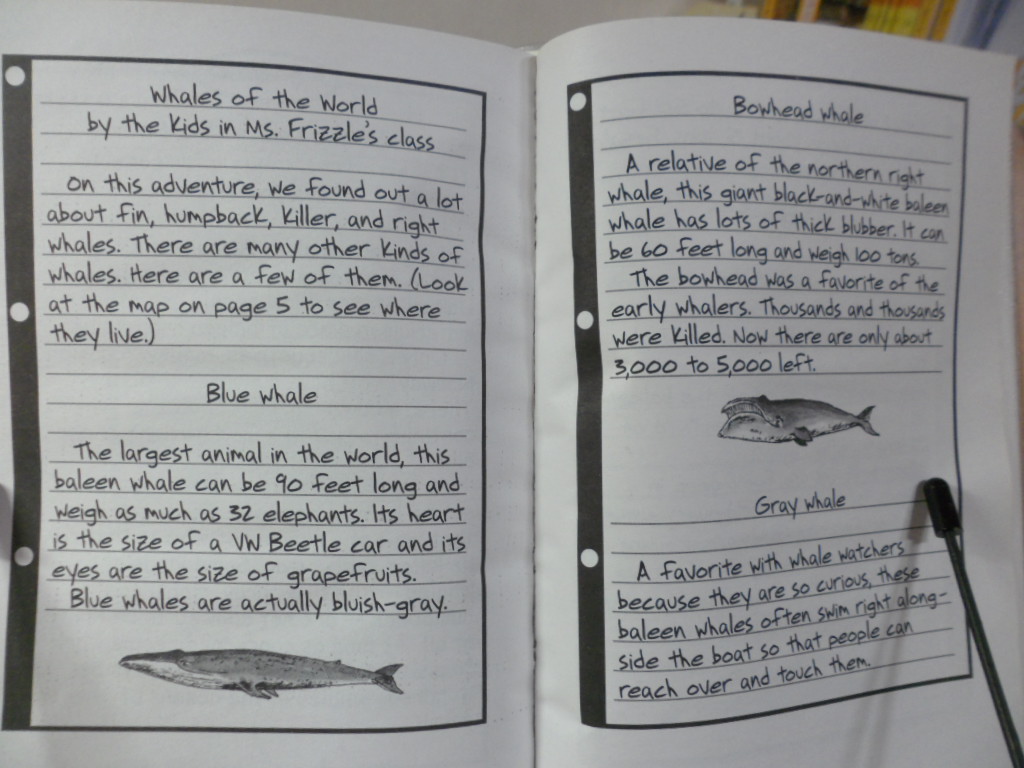 Whales of the World
by the Kids in Ms. Frizzle's class
On this adventure, we found out a lot
about fin, humpback, killer, and right
whales. There are many other kinds of
whales. Here are a few of them. (Look
at the map on page 5 to see where
they live.)
Blue whale
The largest animal in the world, this
baleen whale can be 90 feet long and
weigh as much as 32 elephants. Its heart
is the size of a VW Beetle car and its
eyes are the size of grapefruits.
Blue whales are actually bluish-gray.
Bowhead whale
A relative of the northern right
whale, this giant black-and-white baleen
whale has lots of thick blubber. It can
be 60 feet long and weigh 100 tons.
The bowhead was a favorite of the
early whalers. Thousands and thousands
were killed. Now there are only about
3,000 to 5,000 left.
Gray whale
A favorite with whale watchers
because they are so curious, these
baleen whales often swim right along-
side the boat so that people can
reach over and touch them.